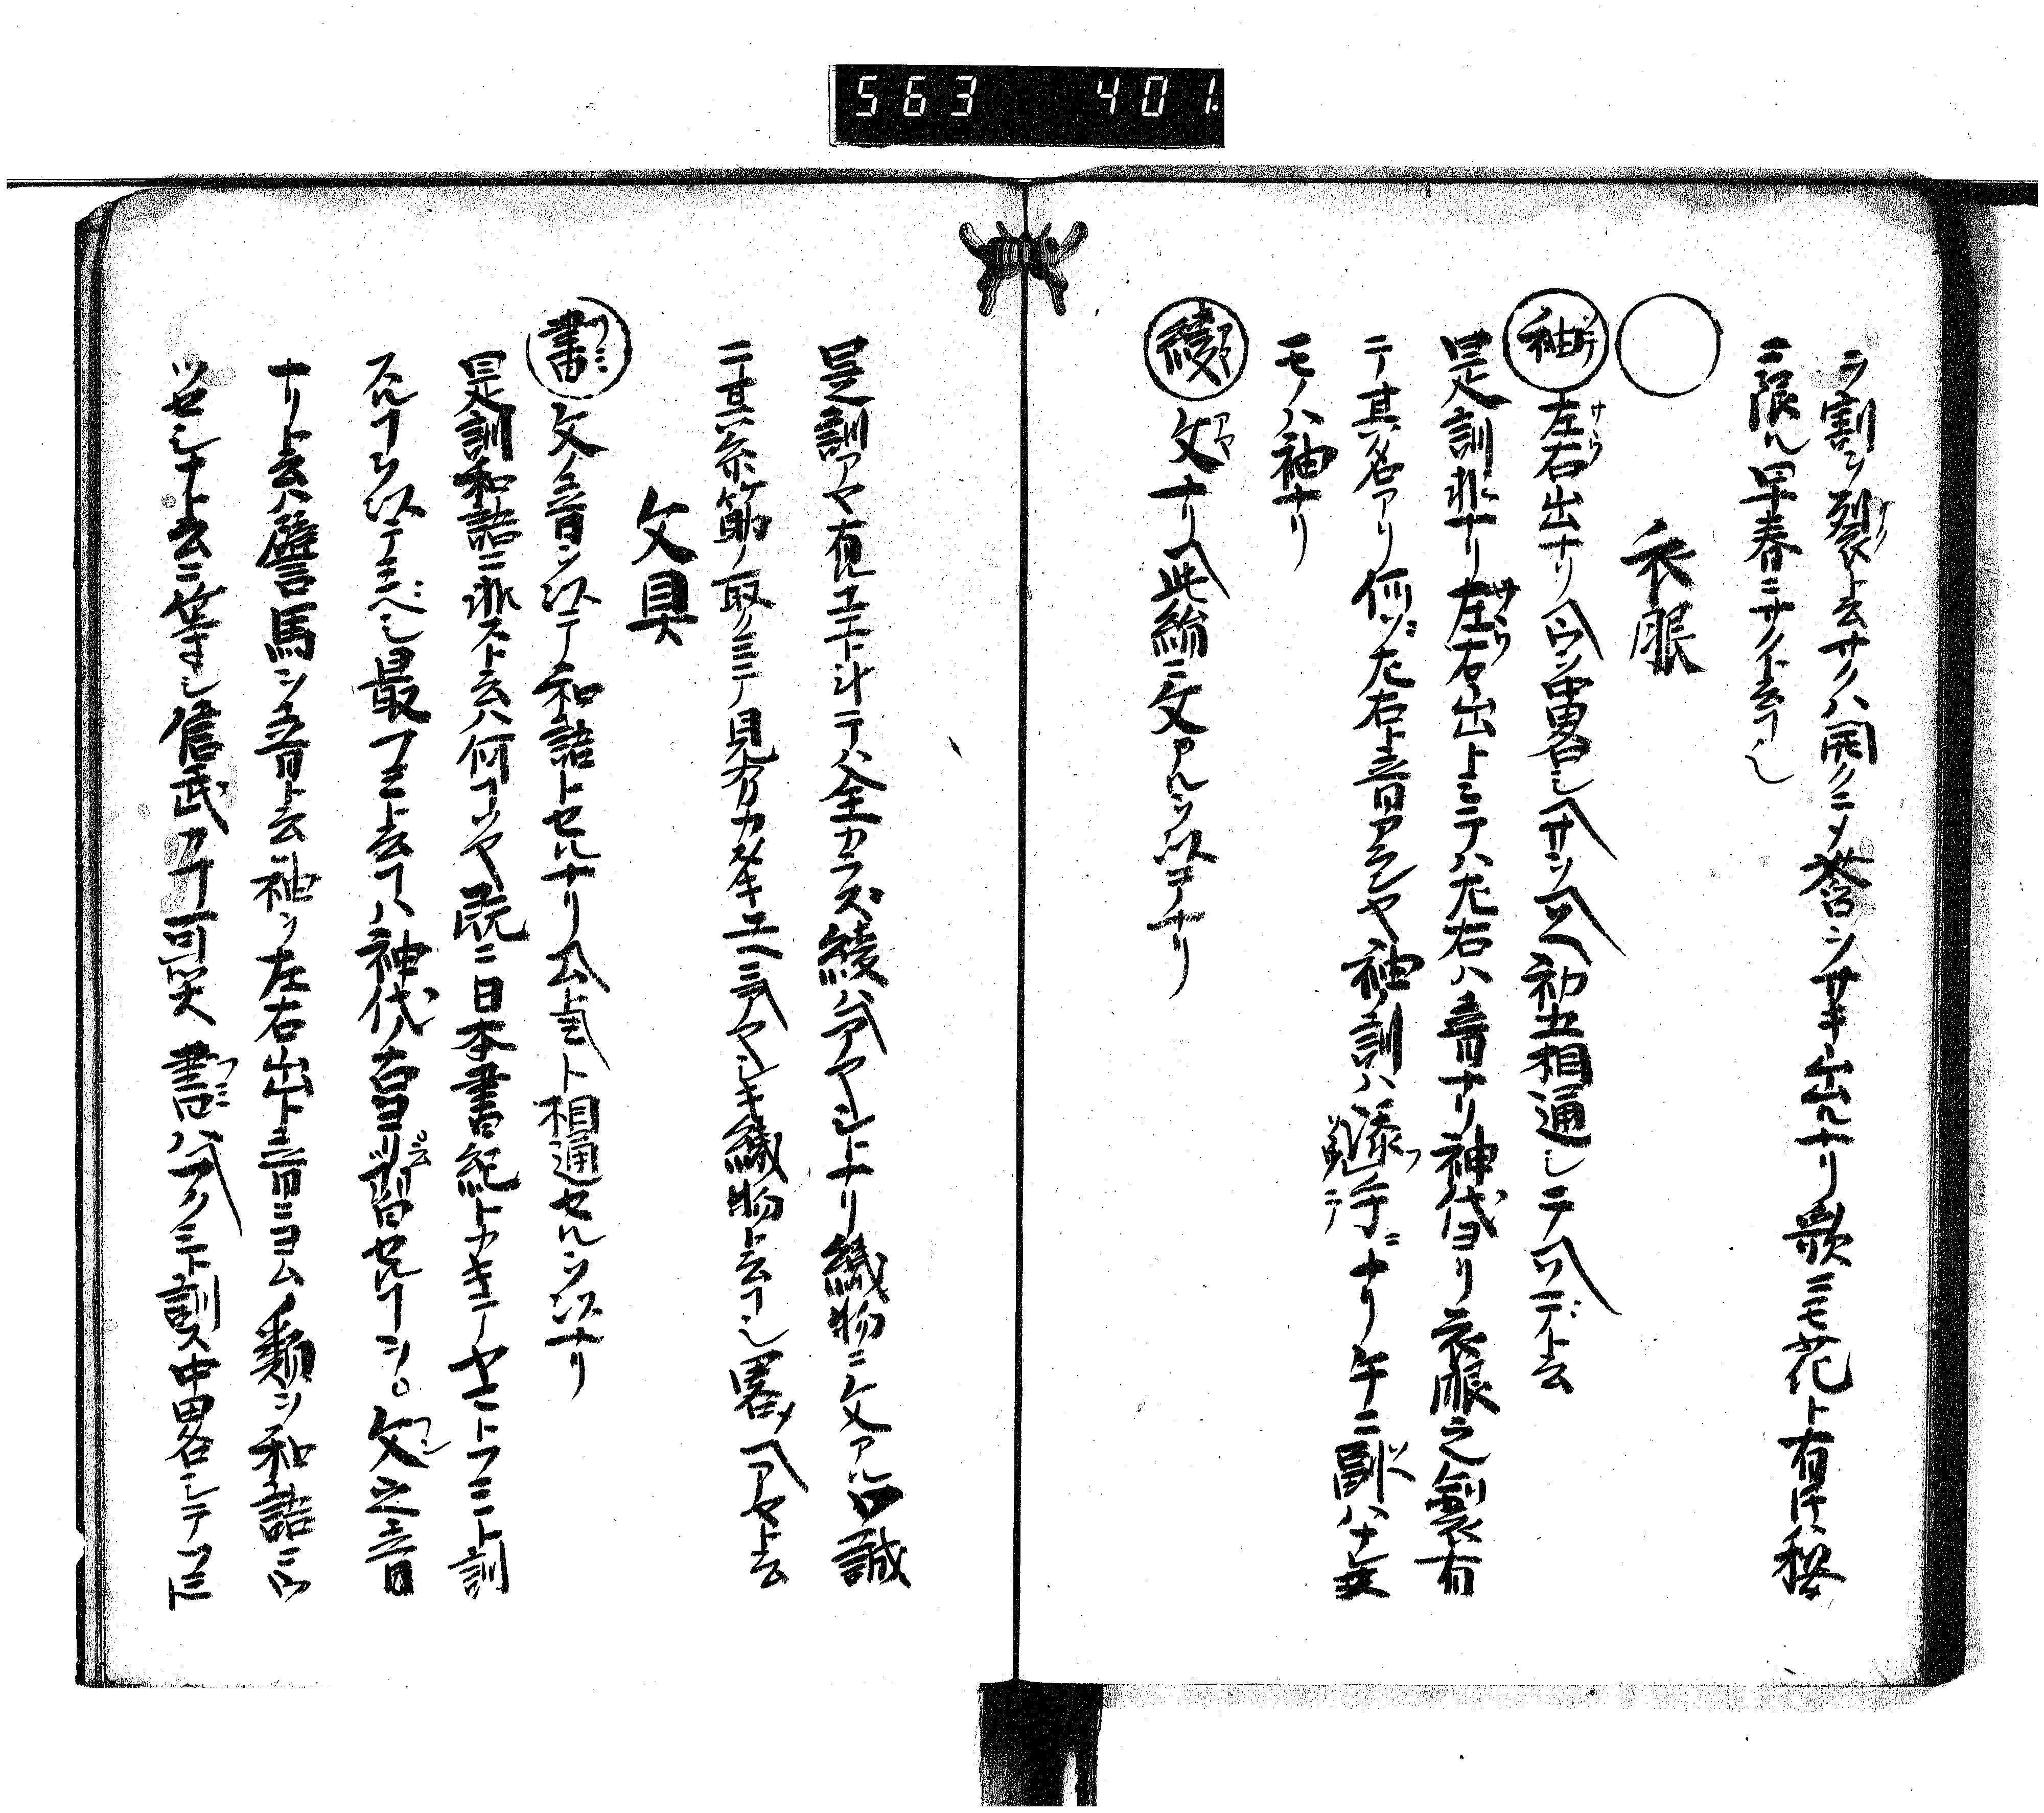 563 401
ヲ割ヲ裂ト云サクハ開クニメ莟ヲサキ出ルナリ歌ニモ花ト有ケハ桜
ニ限ル早春ニサノト云フ
衣服
袖 左右出ナリウヲ中畧シサヲソヘ初五相通シテソデト云
是訓非ナリ左右出トミテハ左右ハ音ナリ神代ヨリ衣服之製有
テ其名アリ何ゾ左右ト音アランヤ袖ノ訓ハ添手ナリ午ニ副ハナ交
モノハ袖ナリ
綾 文ナリ此絹ニ文アルヲ以テナリ
是訓アヤ有ルユエト斗テハ全カラズ綾ハアヤシトナリ織物ニ文アル誠
ニ其糸筋ノ取クミテ見分カタキユヘニアヤシキ織物ト云フシ畧メアヤト云
文具
書 文ノ音ヲ以テ和語トセルナリムトント相通セルヲ以ナリ
是訓和語ニ非ズト云ハ何コトヤ既ニ日本書紀トカキテヤマトフミト訓
スルコトヲ以テミベシ最フミト云コトハ神代ノ古ヨリ習セルコトヲ文之音
ナリト云ハ譬馬ヲ音ト云袖ヲ左右出ト音ニヨムノ類ヲ和語ニ
ツセシナト云ニ等シ信武カコト可笑 書ハフクミト訓ス中畧シテフミト